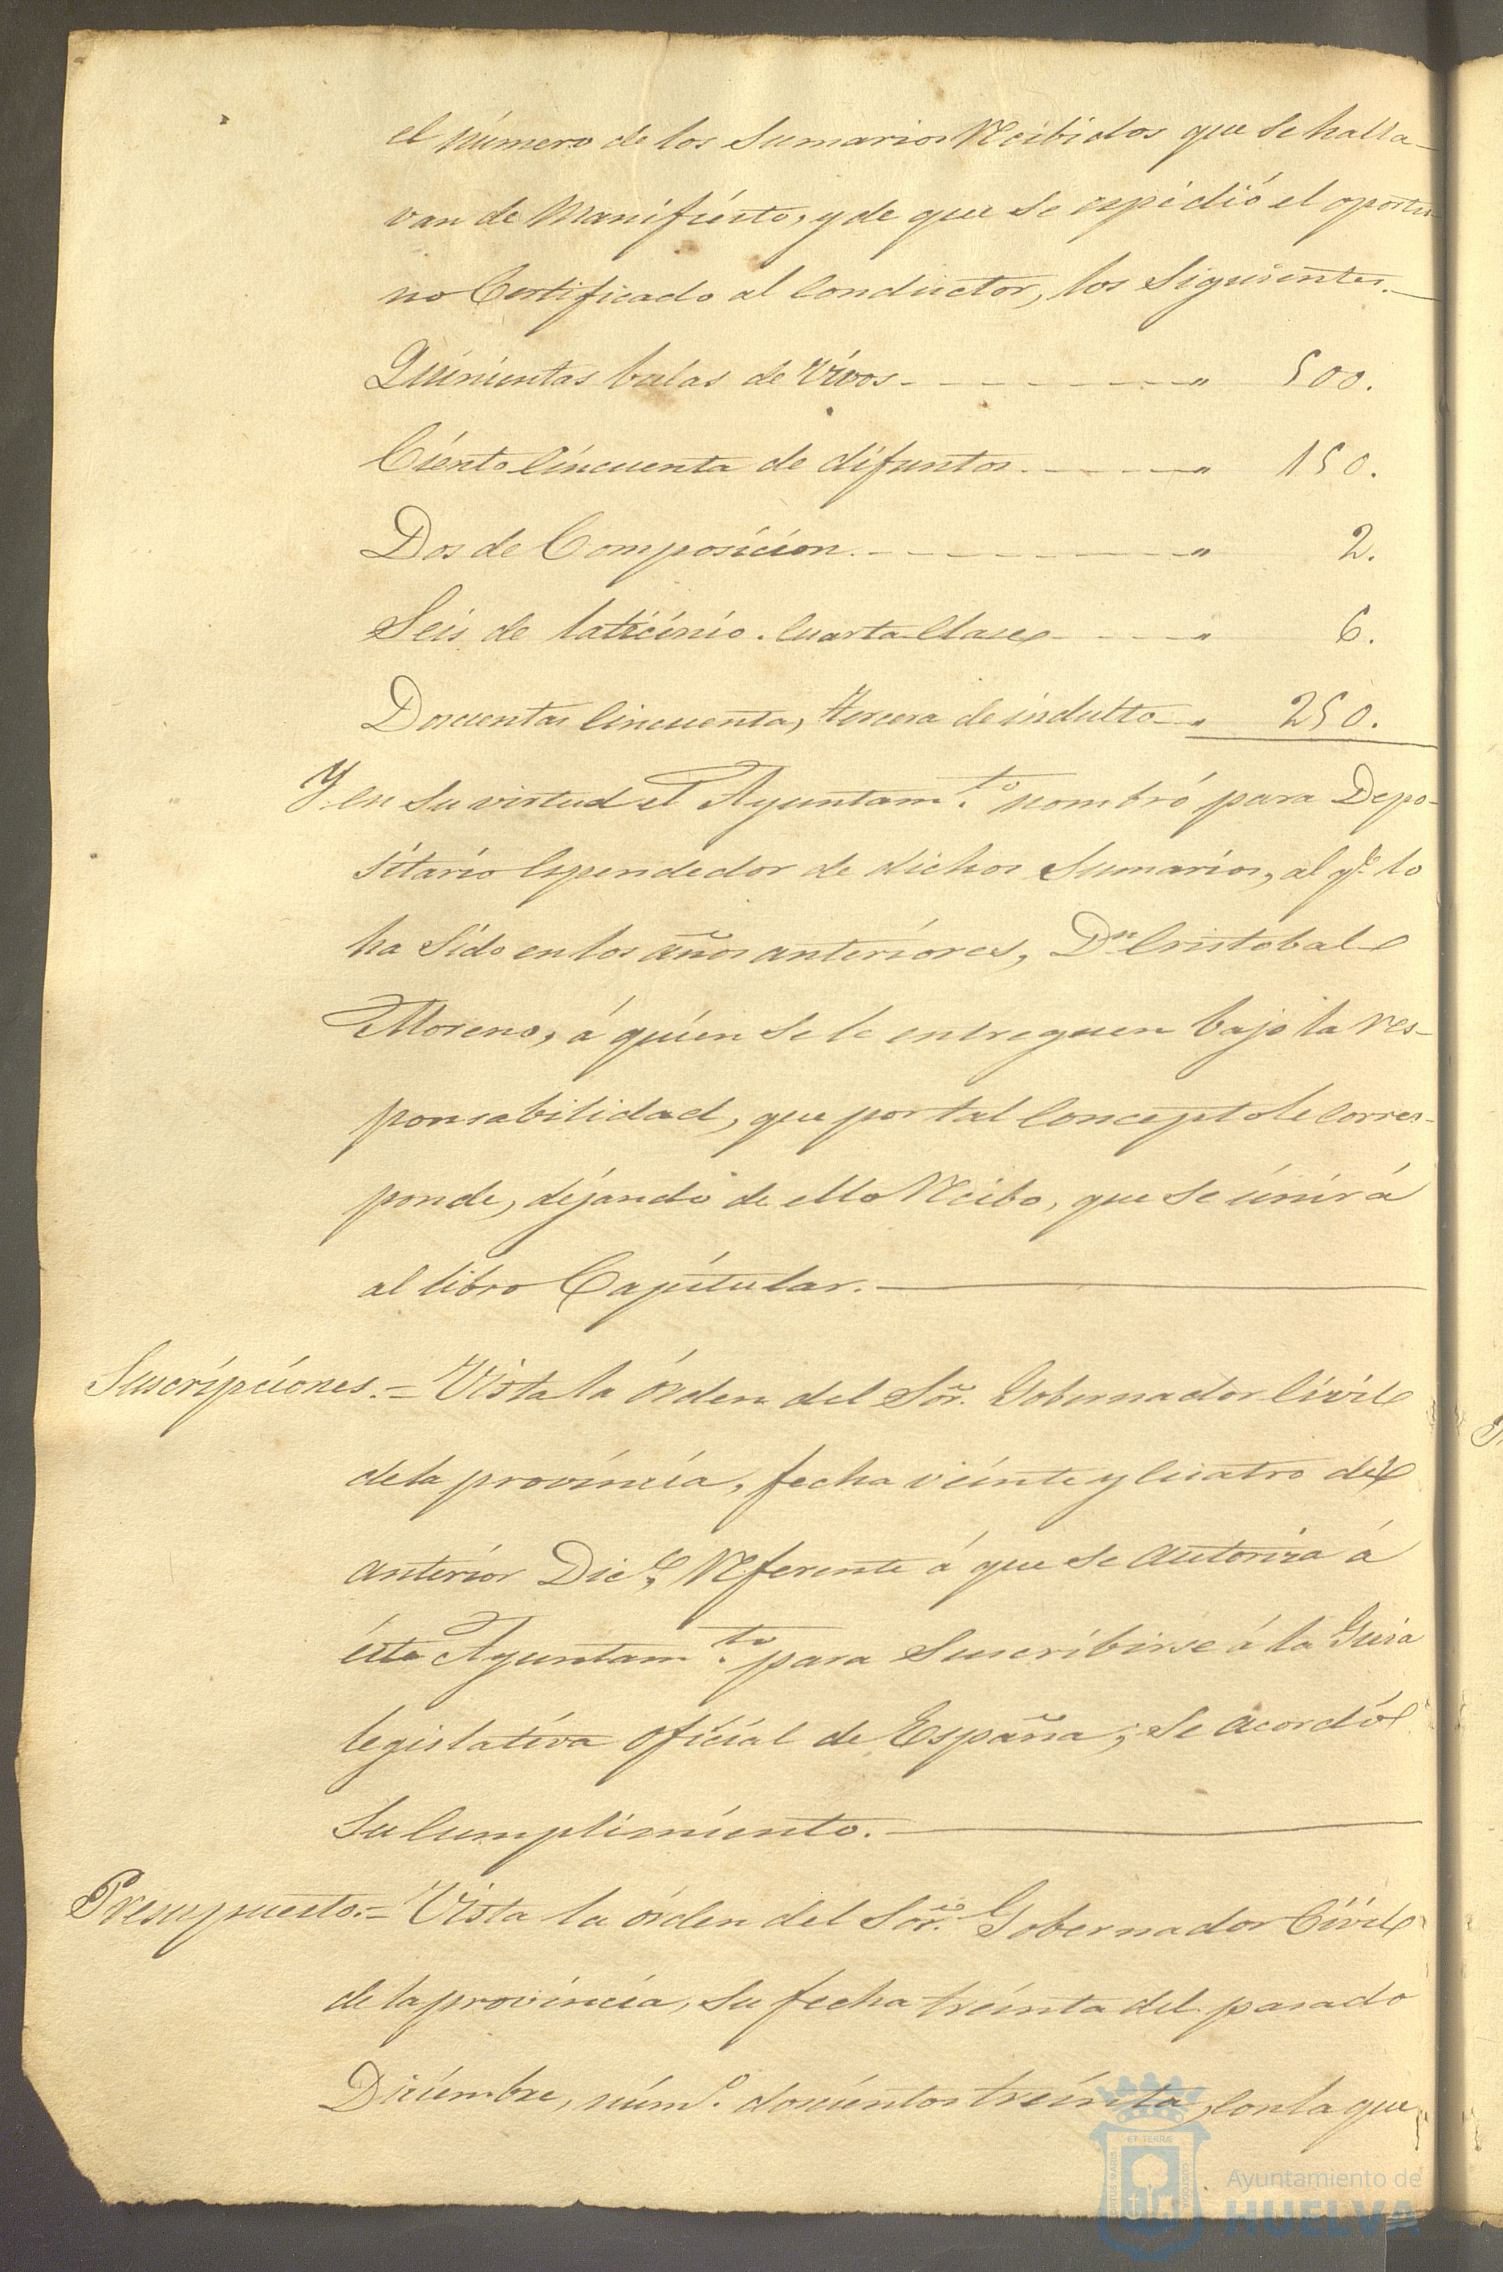 el número de los Sumarios Recibidos que se halla-
van de Manifiesto, y de que se espidió el oportu-
no Certificado al Conductor, los Siguientes.
Quinientas bulas de Vivos " 500.
Ciento Cincuenta de difuntos " 150.
Dos de Composicion " 2.
Seis de laticinio. Cuarta Clase " 6.
Doscientas Cincuenta, tercera de indulto " 250.
Y en su virtud el Ayuntam.to nombró para Depo-
sitario Espendedor de dichos Sumarios, al q.e lo
ha Sido en los años anteriores, Dn Cristobal
Moreno, á quien se le entreguen bajo la res-
ponsabilidad, que por tal Concepto le Corres-
ponde, dejando de ello Recibo, que se únirá
al libro Capitular.
Suscripciones.= Vista la órden del Sör. Gobernador Civil
de la provincia, fecha veinte y Cuatro del
anterior Dic.e, Referente á que se autoriza á
éste Ayuntam.to para Suscribirse á la Guia
legislativa oficial de España; se acordó
Su Cumplimiento.
Presupuesto.= Vista la órden del Sör. Gobernador Civil
de la provincia, su fecha treinta del pasado
Diciembre, núm.o doscientos treinta, con la que
ET TERRÆ
PORTUS MARIS
CUSTODIA
Ayuntamiento de
HUELVA